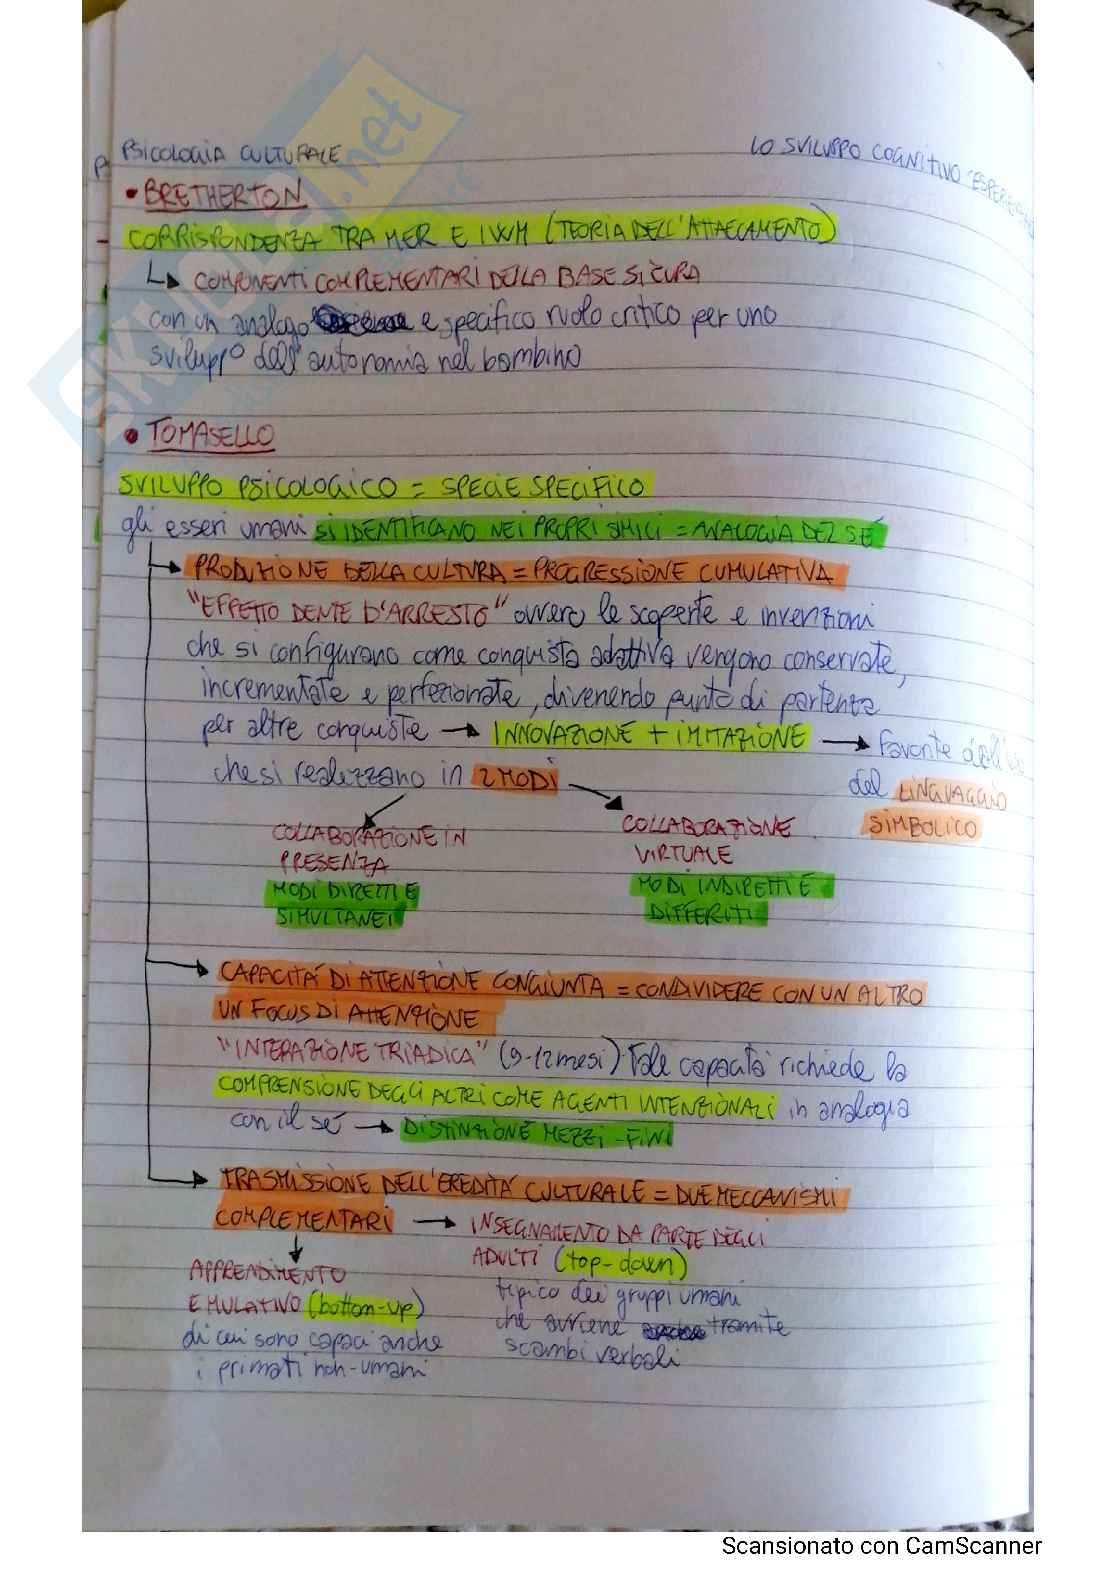 PSICOLOGIA CULTURALE
LO SVILUPPO COGNITIVO
• BRETHERTON
CORRISPONDENZA TRA MER E IWM (TEORIA DELL'ATTACCAMENTO)
COMPONENTI COMPLEMENTARI DELLA BASE SICURA
con un analogo e specifico ruolo critico per uno
sviluppo dell'autonomia nel bambino
• TOMASELLO
SVILUPPO PSICOLOGICO = SPECIE SPECIFICO
gli esseri umani SI IDENTIFICANO NEI PROPRI SIMILI = ANALOGIA DEL SÉ
→ PRODUZIONE DELLA CULTURA = PROGRESSIONE CUMULATIVA
"EFFETTO DENTE D'ARRESTO" ovvero le scoperte e invenzioni
che si configurano come conquista adattiva vengono conservate,
incrementate e perfezionate, divenendo punto di partenza
per altre conquiste → INNOVAZIONE + IMITAZIONE → favorite
che si realizzano in 2 MODI
del LINGUAGGIO
SIMBOLICO
COLLABORAZIONE IN
PRESENZA
MODI DIRETTI E
SIMULTANEI
COLLABORAZIONE
VIRTUALE
MODI INDIRETTI E
DIFFERITI
→ CAPACITÀ DI ATTENZIONE CONGIUNTA = CONDIVIDERE CON UN ALTRO
UN FOCUS DI ATTENZIONE
"INTERAZIONE TRIADICA" (9-12 mesi). Tale capacità richiede la
COMPRENSIONE DEGLI ALTRI COME AGENTI INTENZIONALI in analogia
con il sé → DISTINZIONE MEZZI-FINI
→ TRASMISSIONE DELL'EREDITÀ CULTURALE = DUE MECCANISMI
COMPLEMENTARI → INSEGNAMENTO DA PARTE DEGLI
ADULTI (top-down)
tipico dei gruppi umani
che avviene tramite
scambi verbali
APPRENDIMENTO
EMULATIVO (bottom-up)
di cui sono capaci anche
i primati non-umani
Scansionato con CamScanner